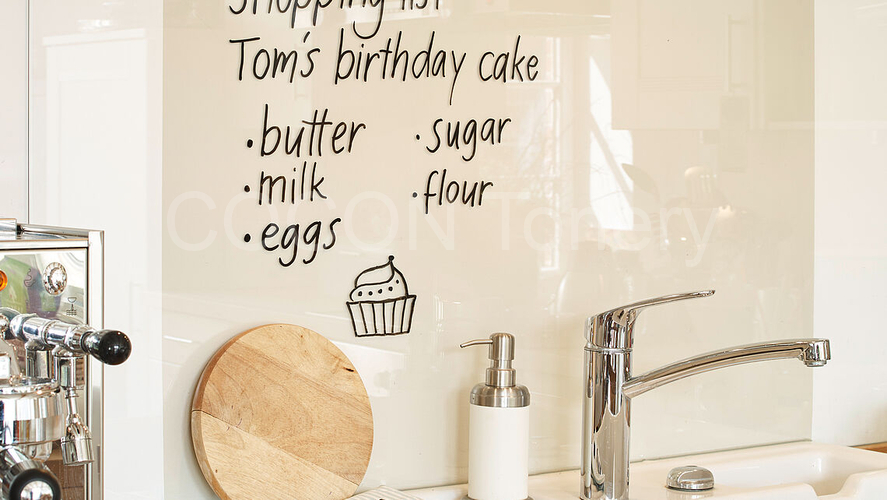 Shopping list
Tom's birthday cake
• butter
• milk
• eggs
• sugar
• flour
COCON Tonery